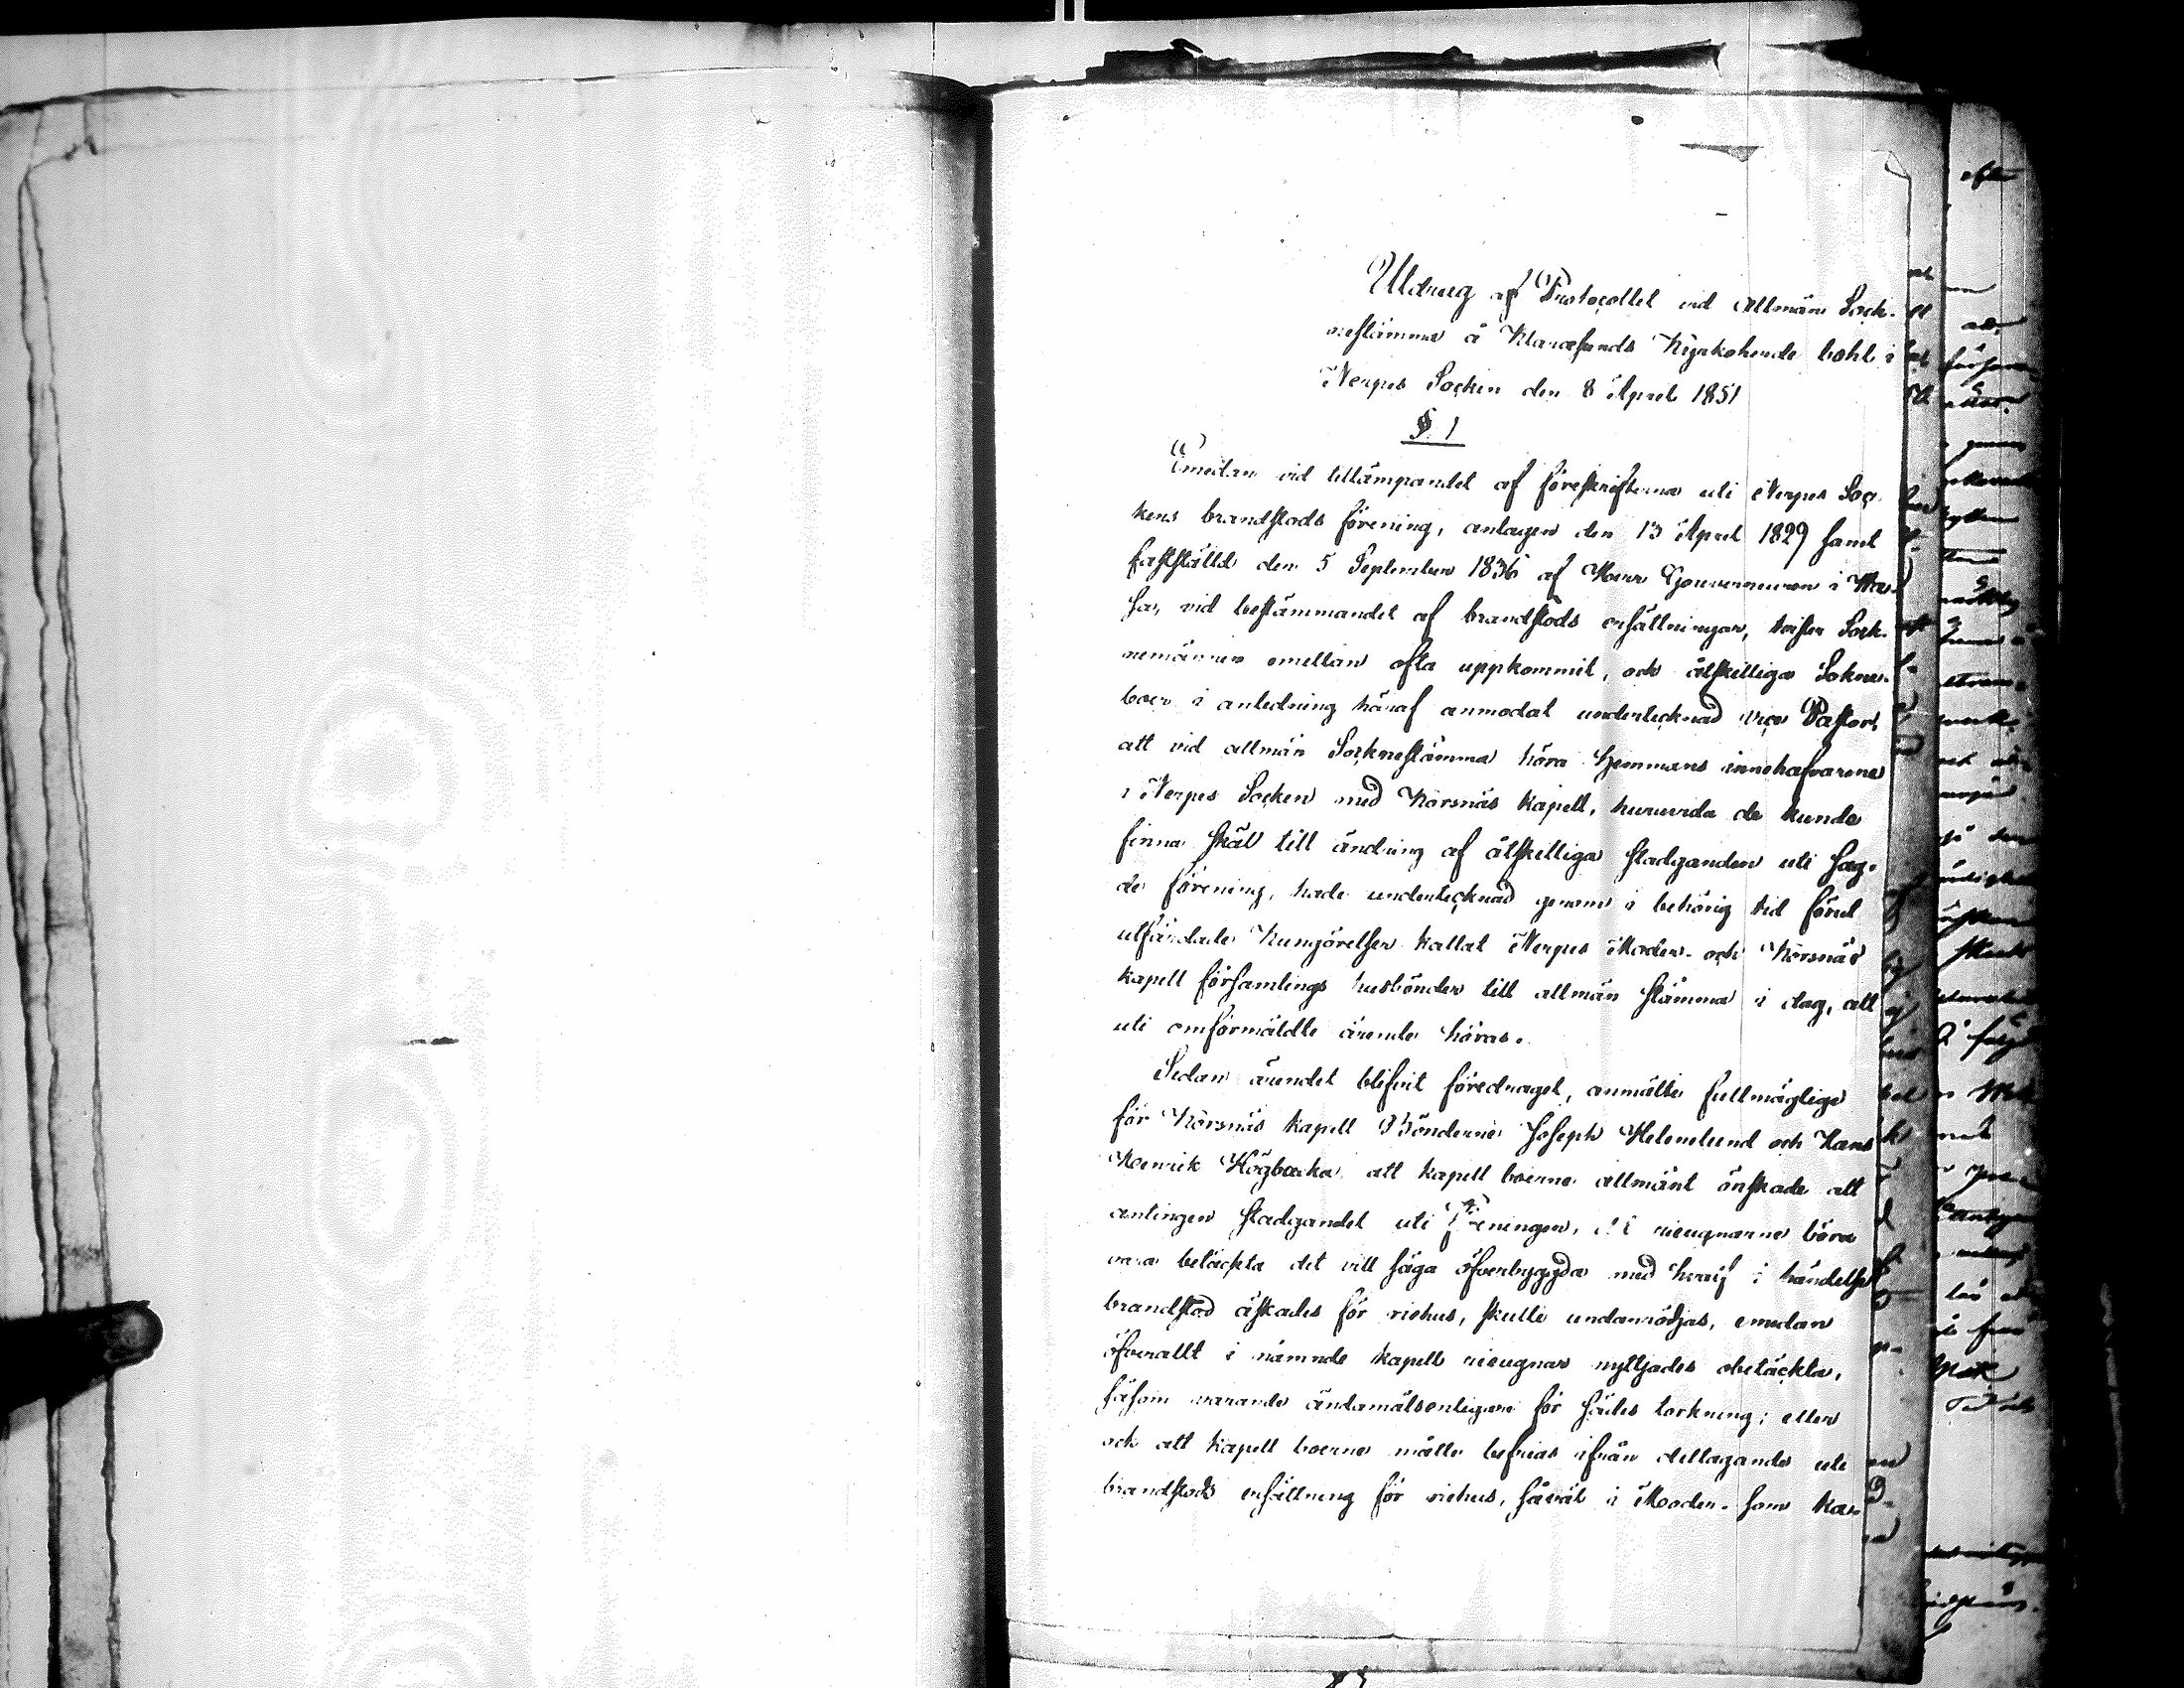 Utdrag af Protocollet vid Allmän Sock-
nestämma å Klaresunds Kyrkoherde bohl i
Nerpes Socken den 8 April 1851
§. 1
Emedan vid tillämpandet af föreskrifterna uti Nerpes Soc-
kens brandstods förening, antagen den 13 April 1829 samt
fastställd den 5 September 1836 af Herr Gouverneuren i Wa-
sa, vid bestämmandet af brandstods ersättningar, tvister Sock-
nemännen emellan ofta uppkommit, och åtskilliga Sokne-
boer i anledning häraf anmodat undertecknad vice Pastor,
att vid allmän Socknestämma höra Hemmans innehafvarene
i Nerpes Socken med Korsnäs Kapell, huruvida de kunde
finna skäl till ändring af åtskilliga stadganden uti sag-
de förening, hade undertecknad genom i behörig tid förut
utfärdade Kungörelser kallat Nerpes Moder- och Korsnäs
kapell församlings husbönder till allmän stämma i dag, att
uti omförmäldte ärende höras.
Sedan ärendet blifvit föredraget, anmälte fullmäglige
för Korsnäs Kapell Bönderne Joseph Helenelund och Hans
Henrik Högbacka att kapell boerne allmänt önskade att
antingen stadgandet uti Föreningen, att rieugnarne böra
vara betäckta det vill säga öfverbyggda med hvalf i händelse
brandstod äskades för riehus, skulle undanrödjas, emedan
öfverallt i nämnde kapell rieugnar nyttjades obetäckta,
såsom varande ändamålsenligare för sädes torkning; eller
och att kapell boerne måtte befrias ifrån deltagande uti
brandstods ersättning för riehus, såväl i Moder- som Ka-